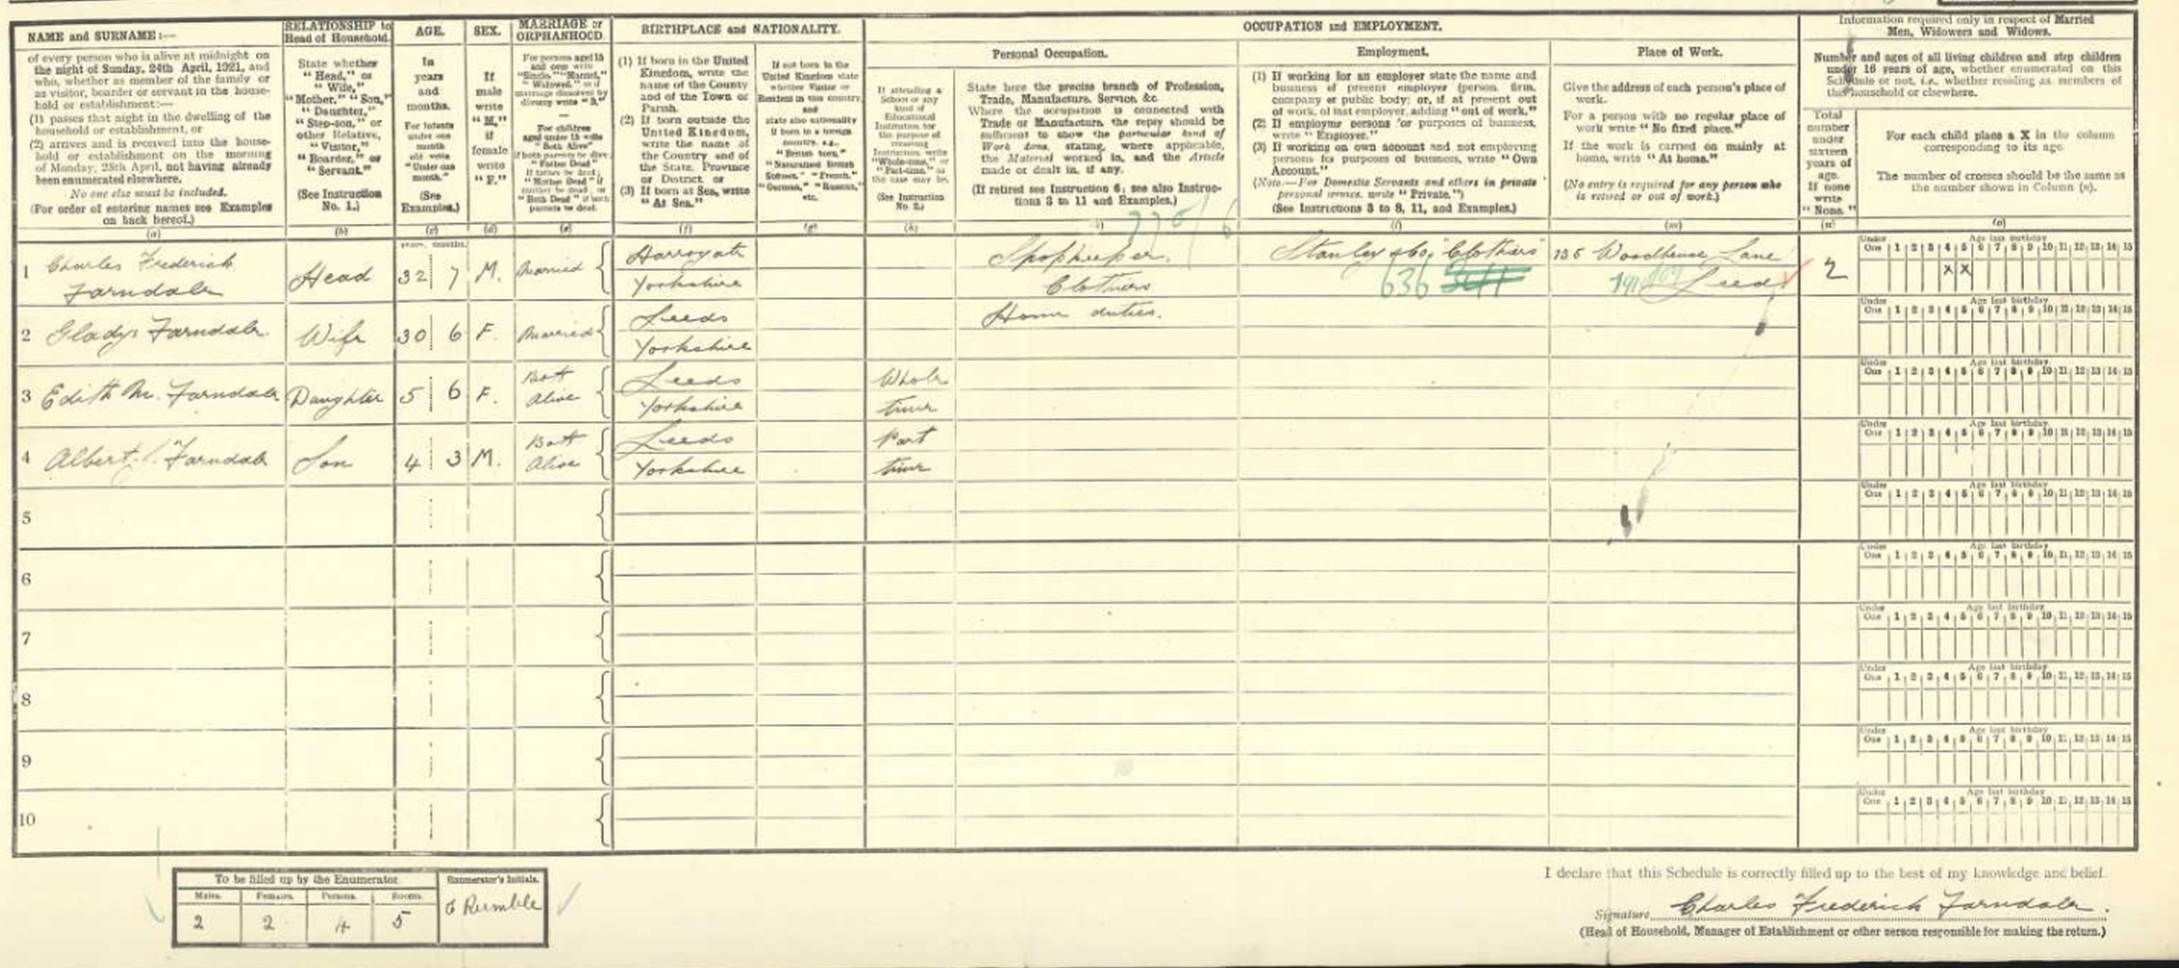 NAME and SURNAME:—
of every person who is alive at midnight on
the night of Sunday, 24th April, 1921, and
who, whether as member of the family or
as visitor, boarder or servant in the house-
hold or establishment:—
(1) passes that night in the dwelling of the
household or establishment, or
(2) arrives and is received into the house-
hold or establishment on the morning
of Monday, 25th April, not having already
been enumerated elsewhere.
No one else must be included.
(For order of entering names see Examples
on back hereof.)
(a)
RELATIONSHIP to
Head of Household.
State whether
"Head," or
"Wife,"
"Mother," "Son,"
"Daughter,"
"Step-son," or
other Relative,
"Visitor,"
"Boarder," or
"Servant."
(See Instruction
No. 1.)
(b)
AGE.
In
years
and
months.
For infants
under one
month
"Under one
month."
(See
Examples.)
(c)
SEX.
If
male
write
"M."
if
female
write
"F."
(d)
MARRIAGE or
ORPHANHOOD.
(e)
BIRTHPLACE and NATIONALITY.
(1) If born in the United
Kingdom, write the
name of the County
and of the Town or
Parish.
(2) If born outside the
United Kingdom,
write the name of
the Country and of
the State, Province
or District, or
(3) If born at Sea, write
"At Sea."
(f)
(g)
(See Instruction
No. 2.)
(h)
OCCUPATION and EMPLOYMENT.
Personal Occupation.
State here the precise branch of Profession,
Trade, Manufacture, Service, &c.
Where the occupation is connected with
Trade or Manufacture, the reply should be
sufficient to show the particular kind of
Work done, stating, where applicable,
the Material worked in, and the Article
made or dealt in, if any.
(If retired see Instruction 6; see also Instruc-
tions 3 to 11 and Examples.)
Employment.
(1) If working for an employer state the name and
business of present employer (person, firm,
company or public body; or, if at present out
of work, of last employer, adding "out of work."
(2) If employing persons for purposes of business,
write "Employer."
(3) If working on own account and not employing
persons for purposes of business, write "Own
Account."
(Note.—For Domestic Servants and others in private
personal service, write "Private.")
(See Instructions 3 to 8, 11, and Examples.)
Place of Work.
Give the address of each person's place of
work.
For a person with no regular place of
work write "No fixed place."
If the work is carried on mainly at
home, write "At home."
(No entry is required for any person who
is retired or out of work.)
Information required only in respect of Married
Men, Widowers and Widows.
Number and ages of all living children and step children
under 16 years of age, whether enumerated on this
Schedule or not, i.e., whether residing as members of
this household or elsewhere.
Total
number
under
sixteen
years of
age.
If none
write
"None."
For each child place a X in the column
corresponding to its age.
The number of crosses should be the same as
the number shown in Column (n).
1 Charles Frederick
Farndale Head 32 7 M. Married Harrogate
Yorkshire Shopkeeper.
Clothiers Stanley & Co, "Clothiers"
636 Woodhouse Lane
Leeds 2 X X
2 Gladys Farndale Wife 30 6 F. Married Leeds
Yorkshire Home duties.
3 Edith M. Farndale Daughter 5 6 F. Both
Alive Leeds
Yorkshire Whole
time
4 Albert Farndale Son 4 3 M. Both
Alive Leeds
Yorkshire Part
time
5
6
7
8
9
10
To be filled up by the Enumerator.
Males. Females. Persons. Rooms.
2 2 4 5
Enumerator's Initials.
Rumble
I declare that this Schedule is correctly filled up to the best of my knowledge and belief.
Signature Charles Frederick Farndale.
(Head of Household, Manager of Establishment or other person responsible for making the return.)